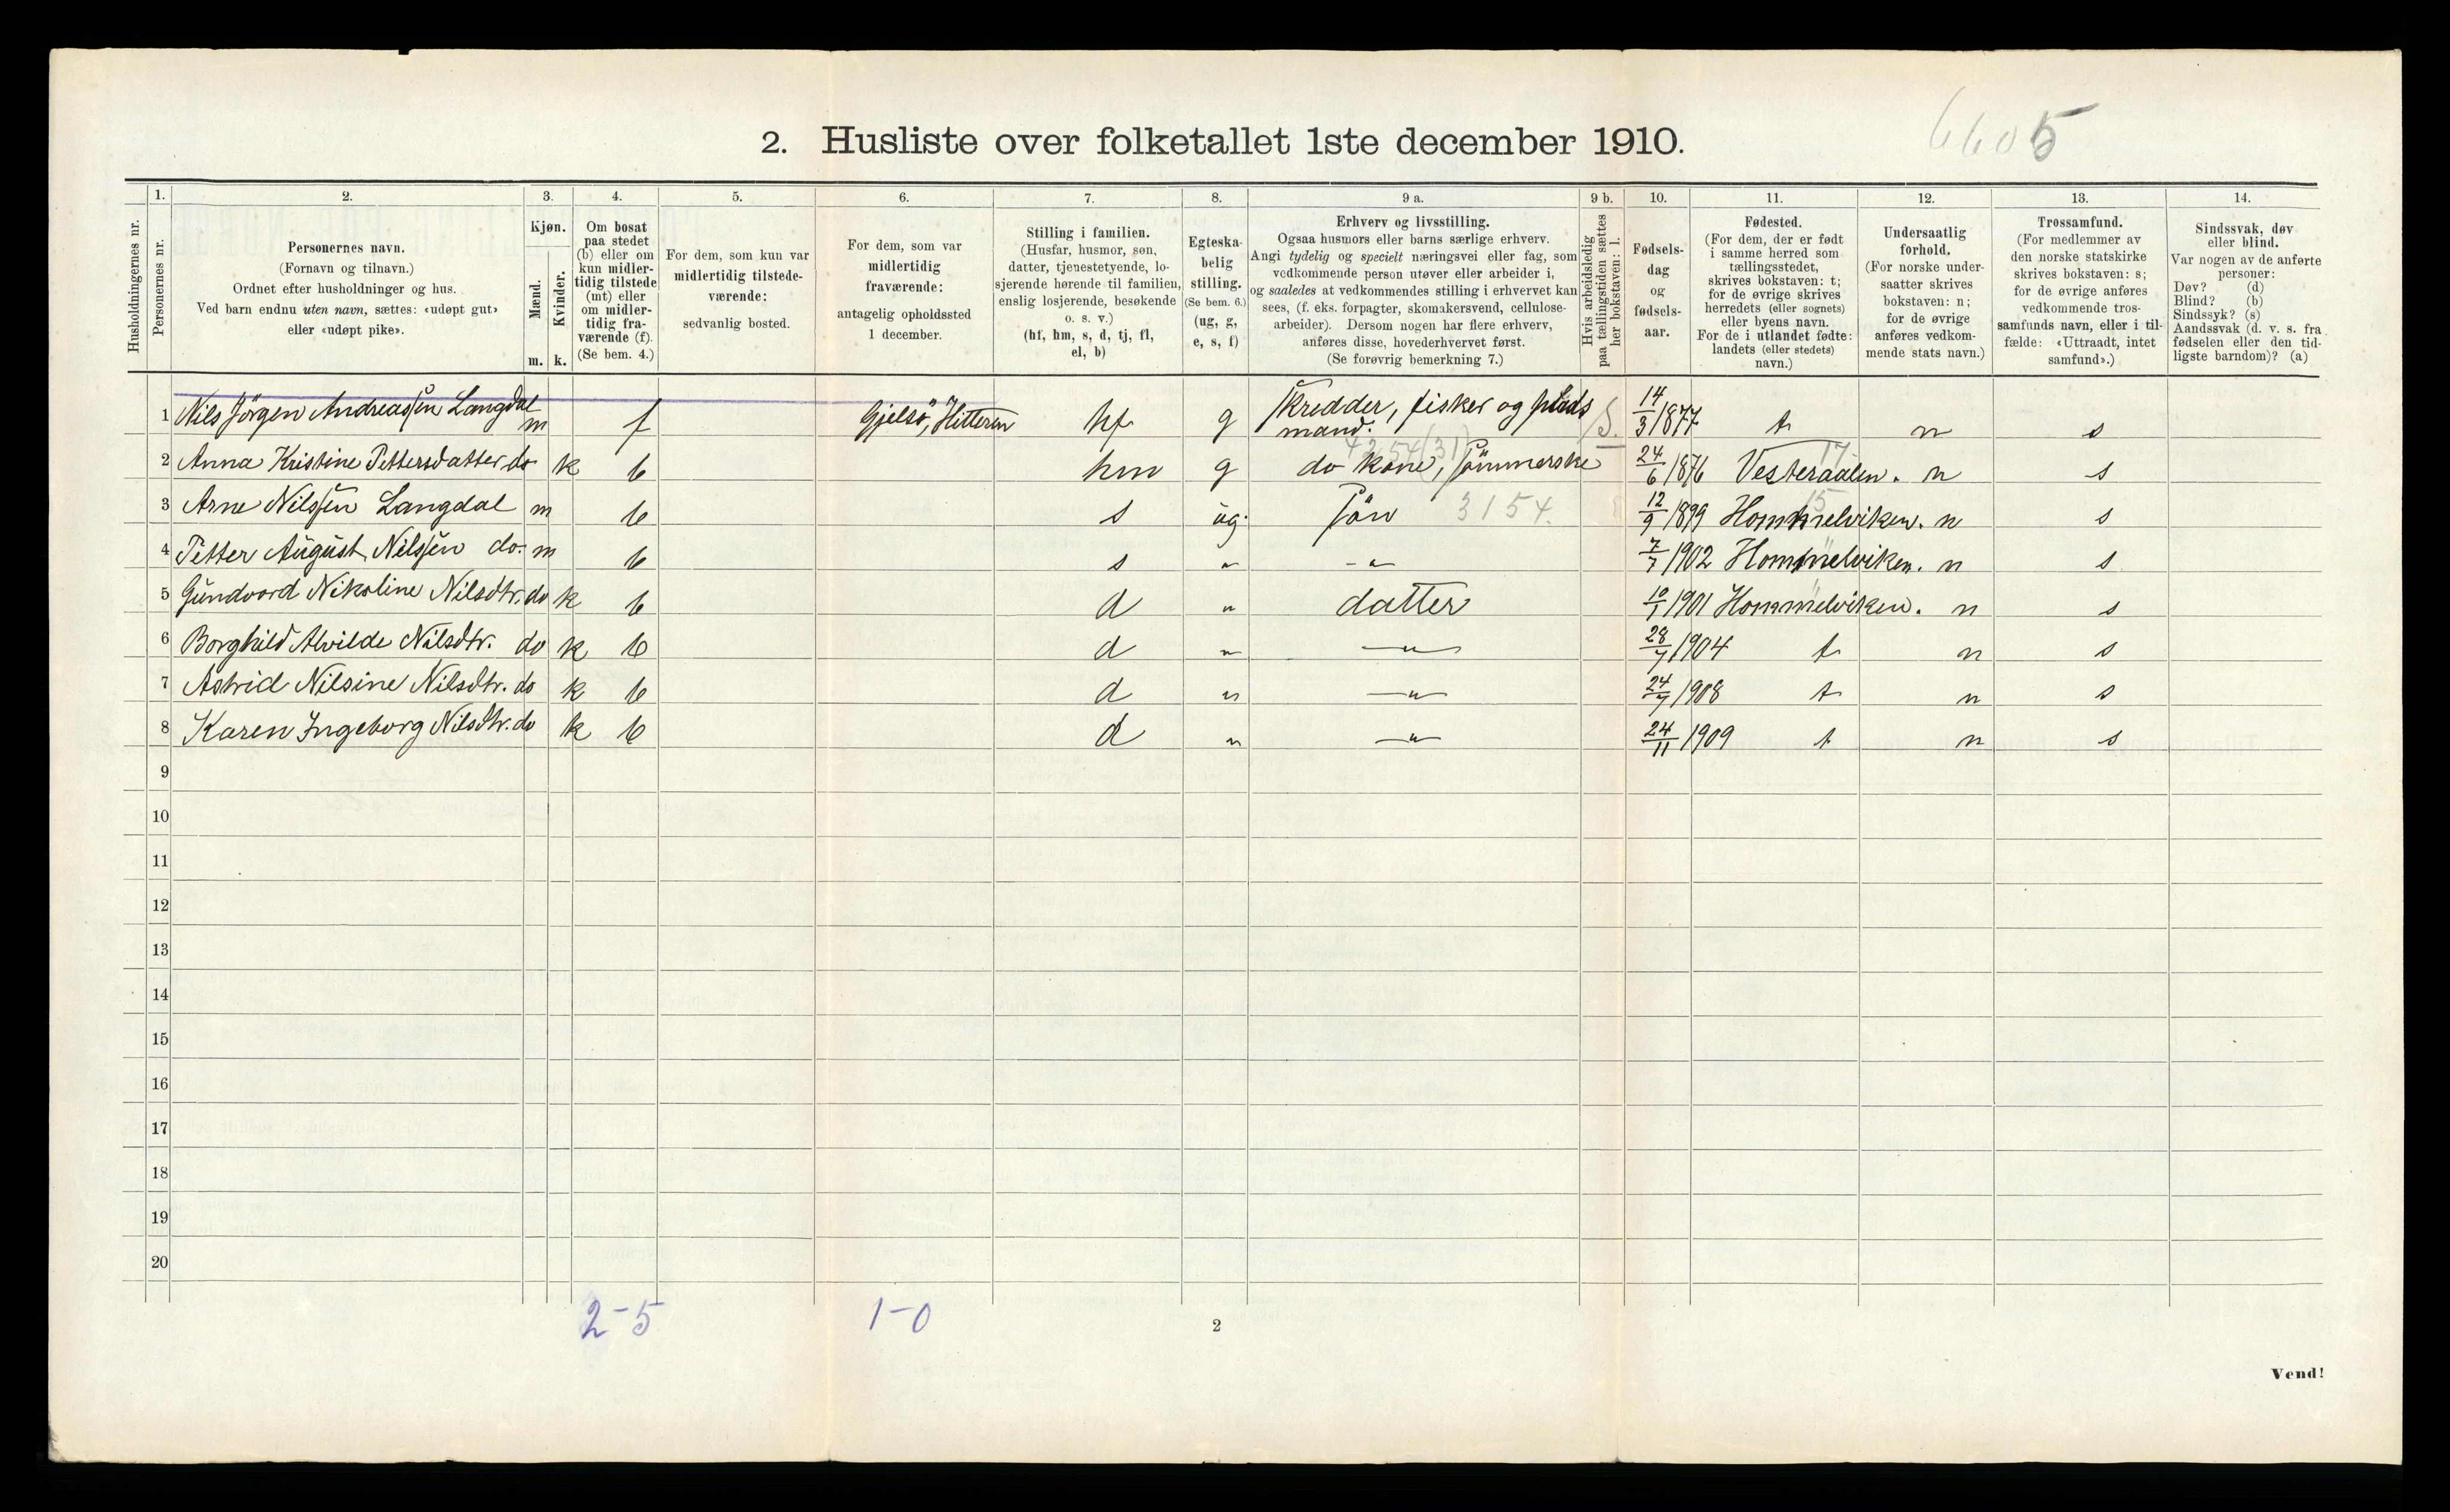 2. Husliste over folketallet 1ste december 1910.
6605
Husholdningernes nr.
1.
Personernes nr.
2.
Personernes navn.
(Fornavn og tilnavn.)
Ordnet efter husholdninger og hus.
Ved barn endnu uten navn, sættes: «udøpt gut»
eller «udøpt pike».
3.
Kjøn.
Mænd.
Kvinder.
m. k.
4.
Om bosat
paa stedet
(b) eller om
kun midler-
tidig tilstede
(mt) eller
om midler-
tidig fra-
værende (f).
(Se bem. 4.)
5.
For dem, som kun var
midlertidig tilstede-
værende:
sedvanlig bosted.
6.
For dem, som var
midlertidig
fraværende:
antagelig opholdssted
1 december.
7.
Stilling i familien.
(Husfar, husmor, søn,
datter, tjenestetyende, lo-
sjerende hørende til familien,
enslig losjerende, besøkende
o. s. v.)
(hf, hm, s, d, tj, fl,
el, b)
8.
Egteska-
belig
stilling.
(Se bem. 6.)
(ug, g,
e, s, f)
9 a.
Erhverv og livsstilling.
Ogsaa husmors eller barns særlige erhverv.
Angi tydelig og specielt næringsvei eller fag, som
vedkommende person utøver eller arbeider i,
og saaledes at vedkommendes stilling i erhvervet kan
sees, (f. eks. forpagter, skomakersvend, cellulose-
arbeider). Dersom nogen har flere erhverv,
anføres disse, hovederhvervet først.
(Se forøvrig bemerkning 7.)
9 b.
Hvis arbeidsledig
paa tællingstiden sættes
her bokstaven: l.
10.
Fødsels-
dag
og
fødsels-
aar.
11.
Fødested.
(For dem, der er født
i samme herred som
tællingsstedet,
skrives bokstaven: t;
for de øvrige skrives
herredets (eller sognets)
eller byens navn.
For de i utlandet fødte:
landets (eller stedets)
navn.)
12.
Undersaatlig
forhold.
(For norske under-
saatter skrives
bokstaven: n;
for de øvrige
anføres vedkom-
mende stats navn.)
13.
Trossamfund.
(For medlemmer av
den norske statskirke
skrives bokstaven: s;
for de øvrige anføres
vedkommende tros-
samfunds navn, eller i til-
fælde: «Uttraadt, intet
samfund».)
14.
Sindssvak, døv
eller blind.
Var nogen av de anførte
personer:
Døv? (d)
Blind? (b)
Sindssyk? (s)
Aandssvak (d. v. s. fra
fødselen eller den tid-
ligste barndom)? (a)
1 Nils Jörgen Andreassen Langdal m f Gjelsö, Hitteren hf g Skredder, fisker og plads mand. S. 14/3 1877 t n s
4254(31) 17
2 Anna Kristine Pettersdatter do k b hm g do kone, Sömmerske 24/6 1876 Vesteraalen. n s
3 Arne Nilssen Langdal m b s ug. Sön 3154. 12/9 1899 Hommelviken. n s
15
4 Petter August Nilssen do. m b s " -"- 7/7 1902 Hommelviken. n s
5 Gundvord Nikoline Nilsdtr. do k b d " datter 10/1 1901 Hommelviken. n s
6 Borghild Alvilde Nilsdtr. do k b d " -"- 28/7 1904 t n s
7 Astrid Nilsine Nilsdtr. do k b d " -"- 24/7 1908 t n s
8 Karen Ingeborg Nilsdtr. do k b d " -"- 24/11 1909 t n s
9
10
11
12
13
14
15
16
17
18
19
20
2-5 1-0
2
Vend!